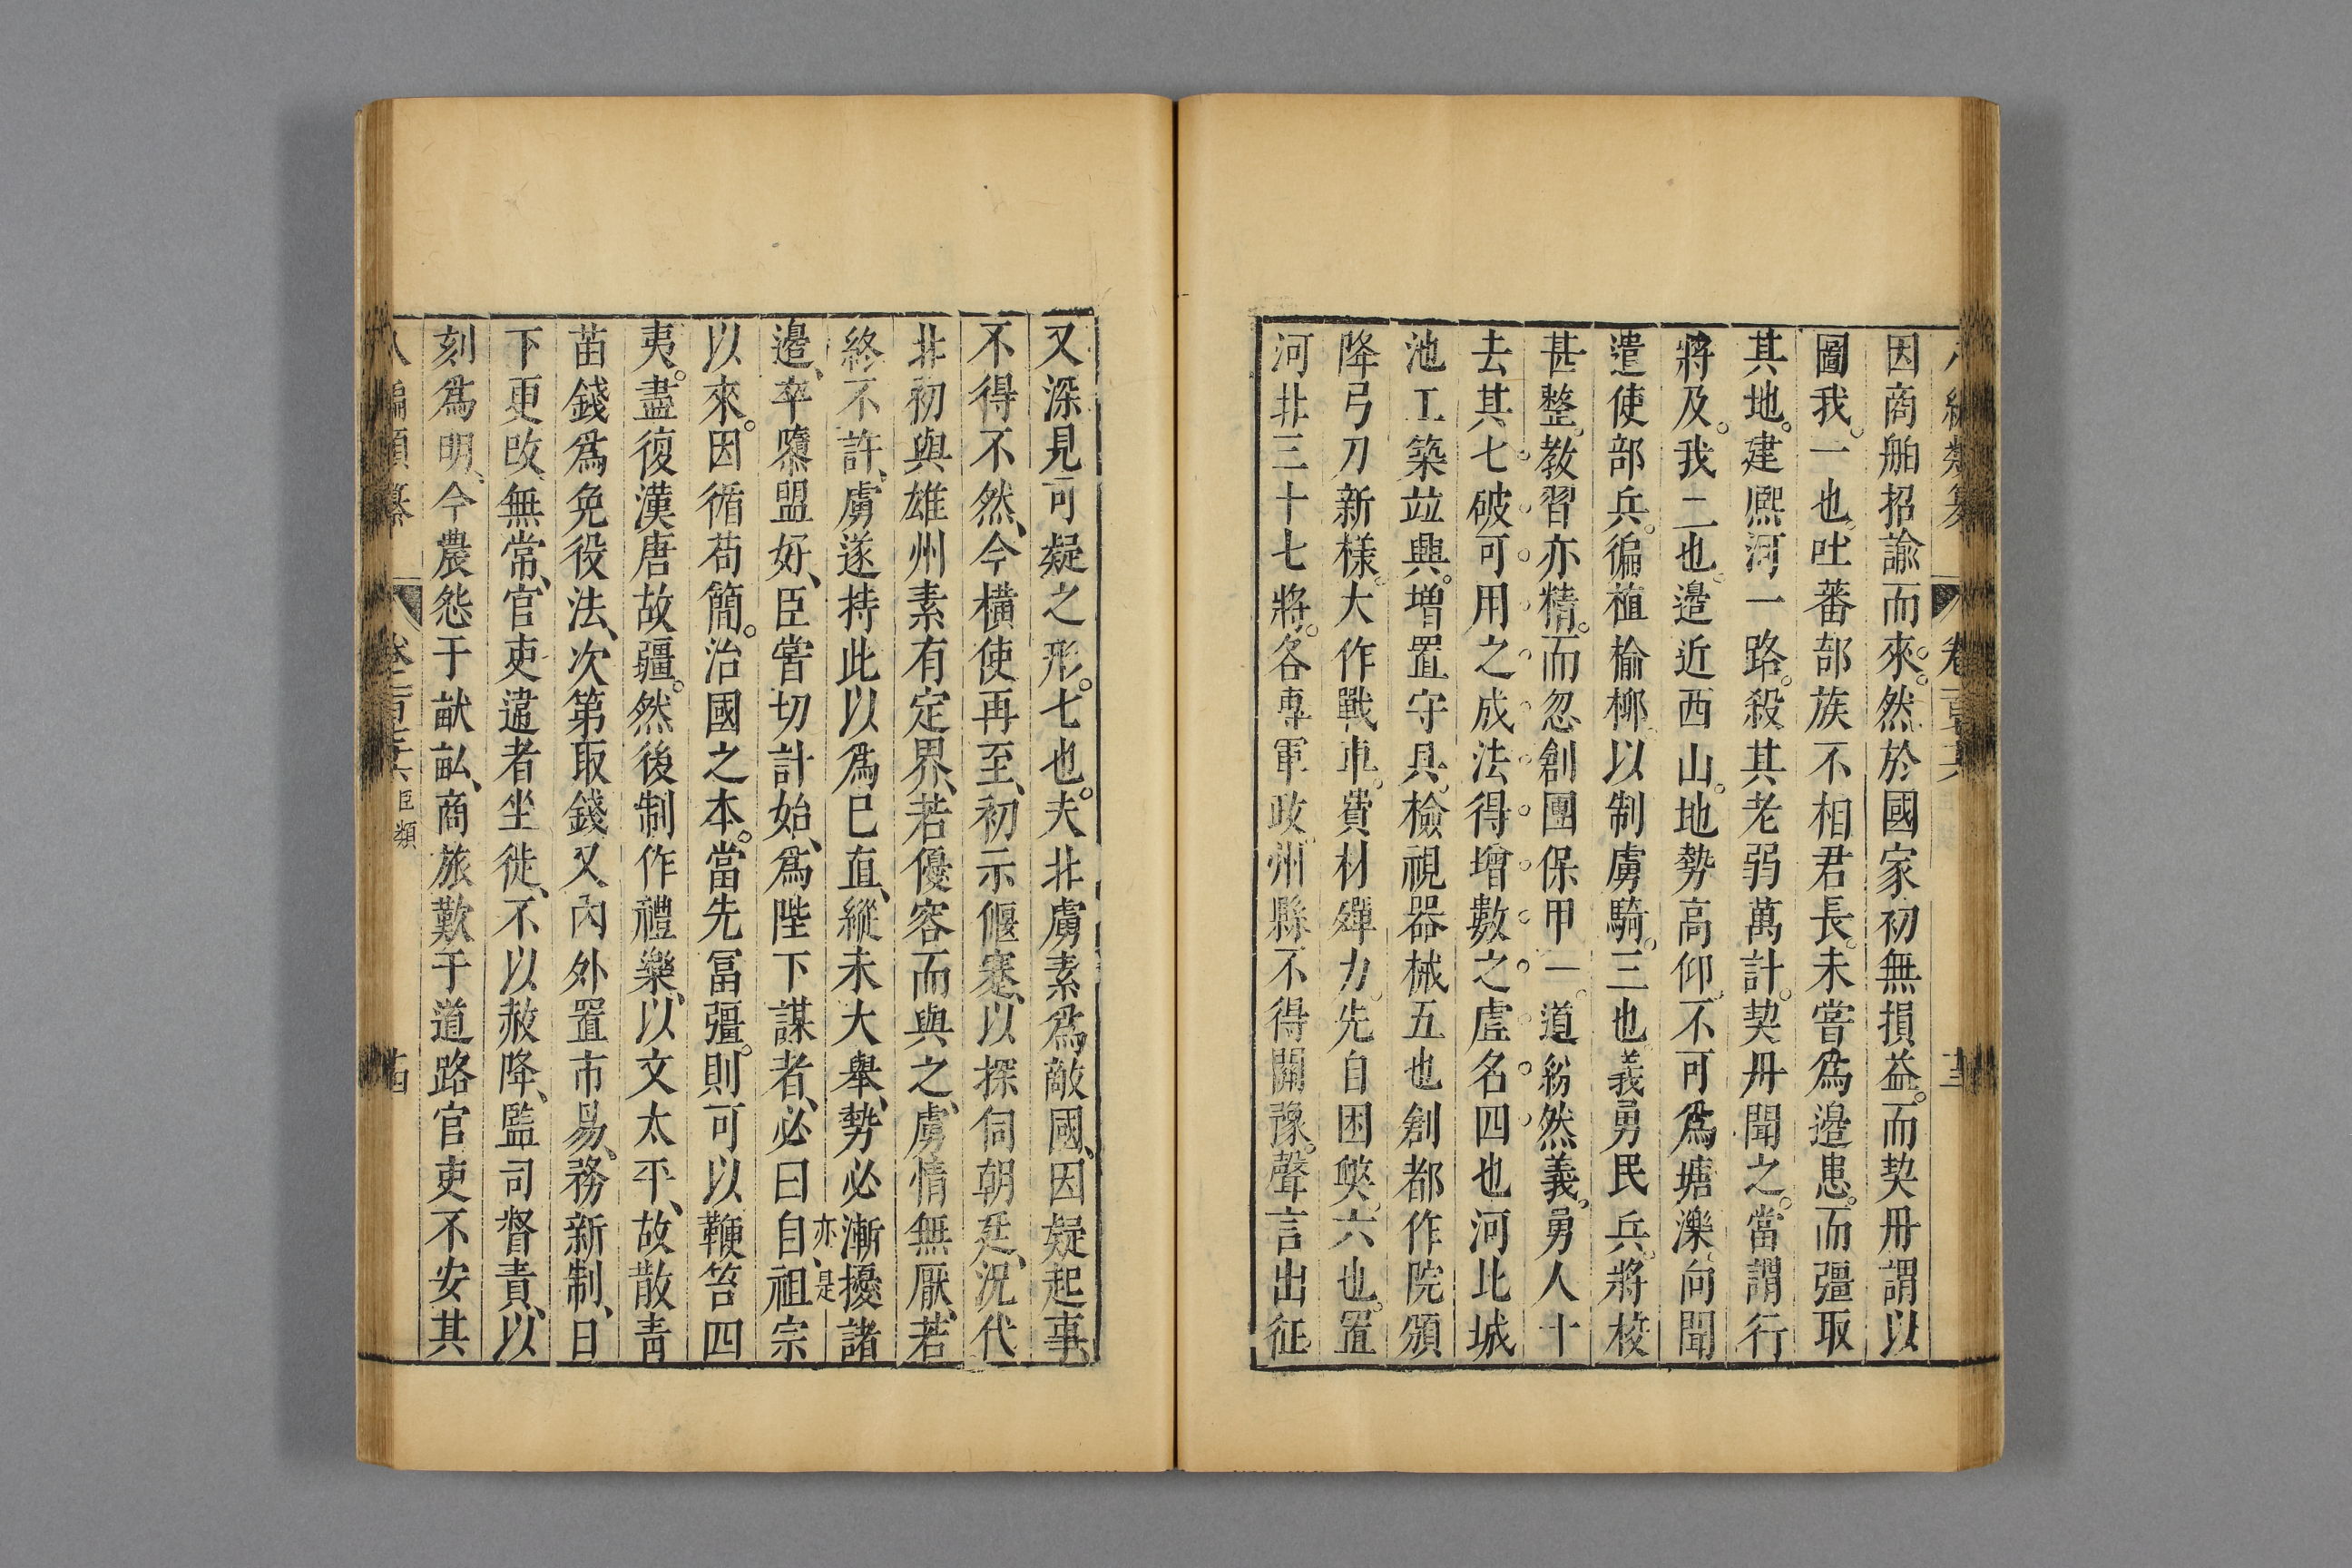 因商舶招諭而來。然於國家初無損益。而契丹謂以
圖我。一也。吐蕃部族不相君長。未嘗爲邉患。而彊取
其地。建熈河一路。殺其老弱萬計。契丹聞之。當謂行
將及。我二也。邉近西山。地勢高仰。不可爲塘濼。向聞
遣使部兵。徧植榆柳。以制虜騎。三也。義勇民兵。將校
甚整。教習亦精。而忽創團保甲一。道紛然義。勇人十
去其七破可用之成法得增數之虛名四也河北城
池工築竝興。增置守具。檢視器械五也創都作院頒
降弓刀新樣。大作戰車。費材殫力。先自困獘。六也。置
河北三十七將。各專軍政。州縣不得關豫。聲言出征。
又深見可疑之形。七也。夫北虜素爲敵國、因疑起事、
不得不然、今橫使再至、初示偃蹇、以探伺朝廷、況代
北初與雄州素有定界、若優容而與之、虜情無厭、若
終不許、虜遂持此以爲已直、縱未大舉、勢必漸擾諸
邉、卒隳盟好、臣嘗切計始、爲陛下謀者、必曰自、祖宗
亦是
以來。因循苟簡。治國之本。當先冨彊。則可以鞭笞四
夷。盡復漢唐故疆。然後制作禮樂、以文太平、故散青
苗錢爲免役法、次第取錢又內外置市易、務新制、日
下更改、無常、官吏遣者坐徙、不以赦降、監司督責、以
刻爲明、今農怨于畎畝、商旅歎于道路官吏不安其
臣類